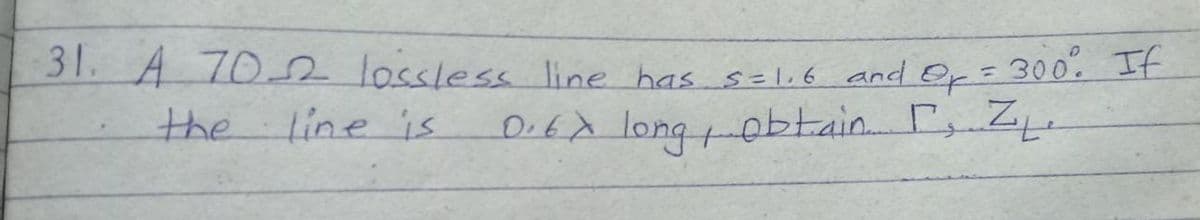 31. A 70Ω lossless line has s=1.6 and Θr = 300°. If
the line is 0.6λ long, obtain Γ, ZL.